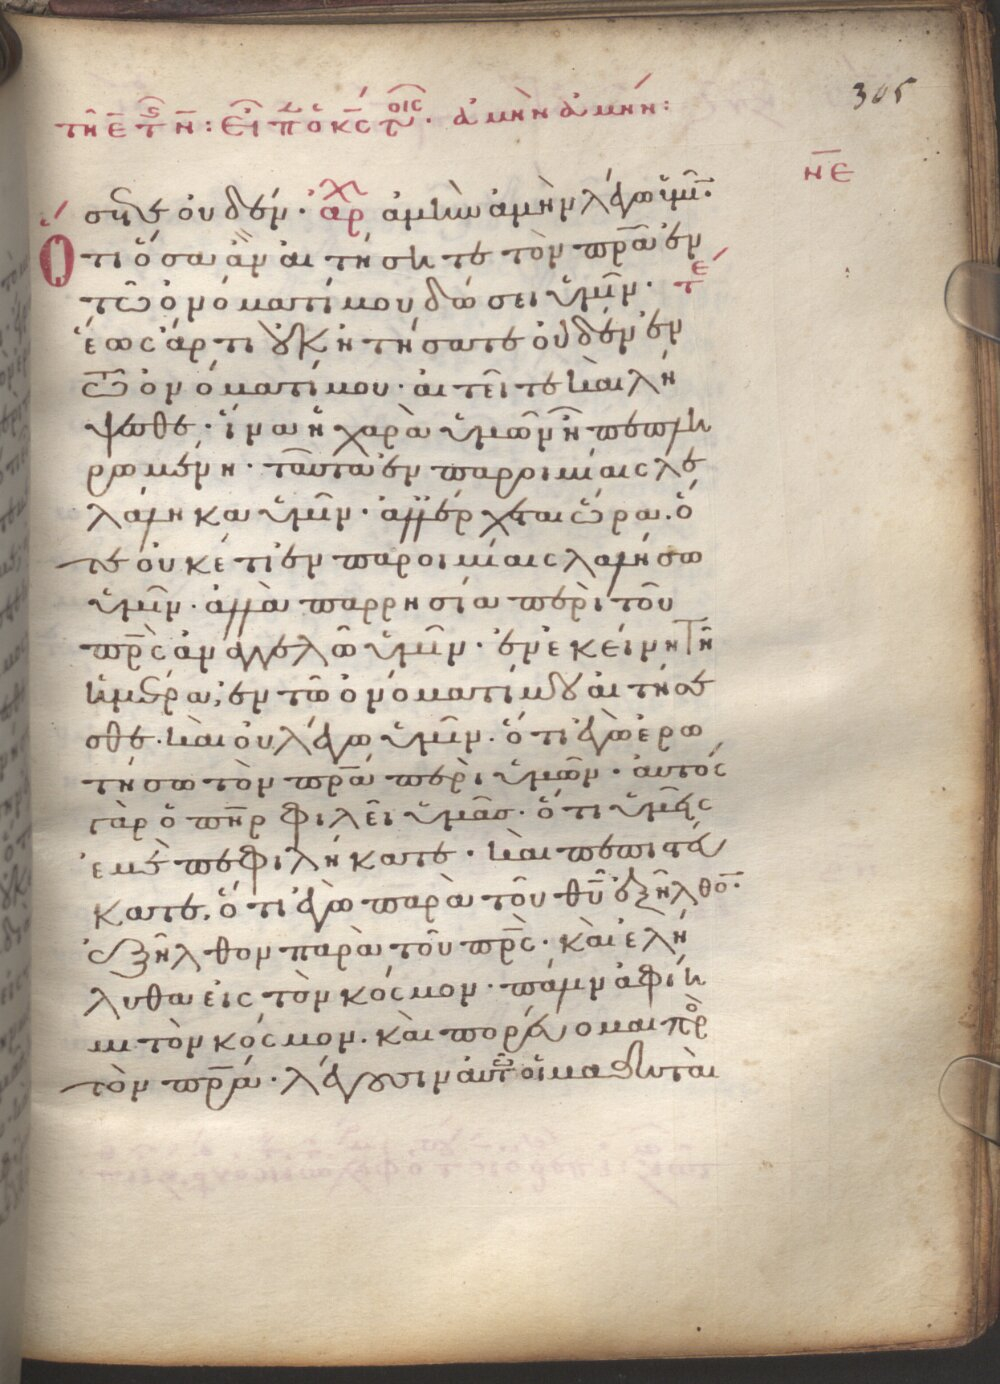 305
τῆ ε̄ τῆς ν̄: εἶπεν ὁ κ̅ς̅ τοῖς · ἀμὴν ἀμήν:
ν̅ε̅
σητε οὐδέν · ἀρχ ἀμὴν ἀμὴν λέγω ὑμῖν·
Ὅτι ὅσα ἂν αἰτήσητε τὸν πρ̅α̅ ἐν
τῶ ὀνόματί μου δώσει ὑμῖν · τέ
ἕως ἄρτι οὐκ ἠτήσατε οὐδὲν ἐν
τῶ ὀνόματί μου · αἰτεῖτε καὶ λή
ψεσθε · ἵνα ἡ χαρὰ ὑμῶν ἦ πεπλη
ρωμένη · ταῦτα ἐν παροιμίαις λε
λάληκα ὑμῖν · ἀλλ' ἔρχεται ὥρα · ὅ
τε οὐκέτι ἐν παροιμίαις λαλήσω
ὑμῖν · ἀλλὰ παρρησία περὶ τοῦ
πρ̅ς̅ ἀναγγελῶ ὑμῖν · ἐν ἐκείνη τῆ
ἡμέρα, ἐν τῶ ὀνόματί μου αἰτήσε
σθε · καὶ οὐ λέγω ὑμῖν · ὅτι ἐγὼ ἐρω
τήσω τὸν πρ̅α̅ περὶ ὑμῶν · αὐτὸς
γὰρ ὁ πη̅ρ φιλεῖ ὑμᾶς · ὅτι ὑμεῖς
ἐμὲ πεφιλήκατε · καὶ πεπιστεύ
κατε, ὅτι ἐγὼ παρὰ τοῦ θ̅υ̅ ἐξῆλθον·
ἐξῆλθον παρὰ τοῦ πρ̅ς̅ · καὶ ἐλή
λυθα εἰς τὸν κόσμον · πάλιν ἀφίη
μι τὸν κόσμον · καὶ πορεύομαι πρὸς
τὸν πρ̅α̅ · λέγουσιν αὐτῶ οἱ μαθηταὶ